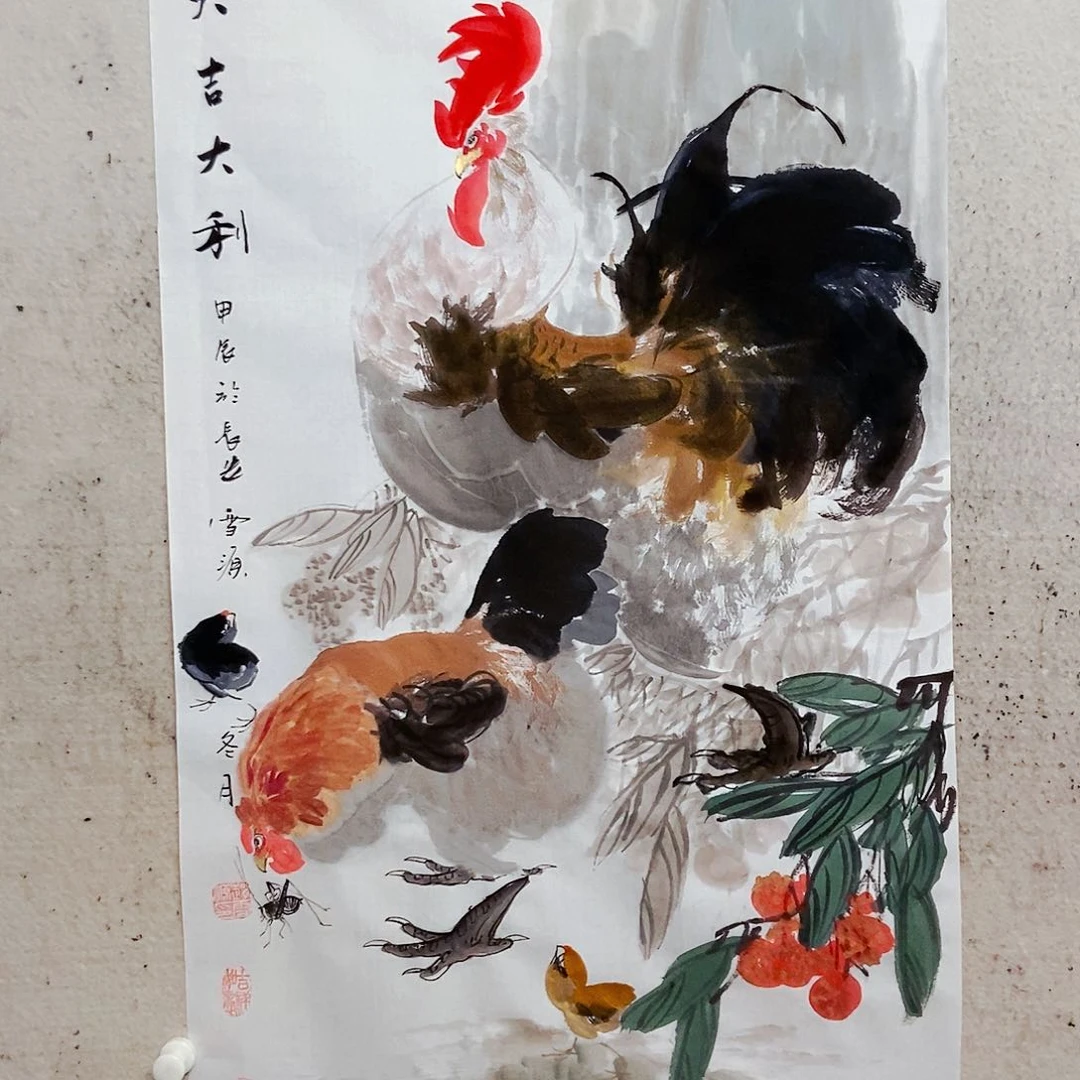 大吉大利
甲辰於長安雪源
冬月